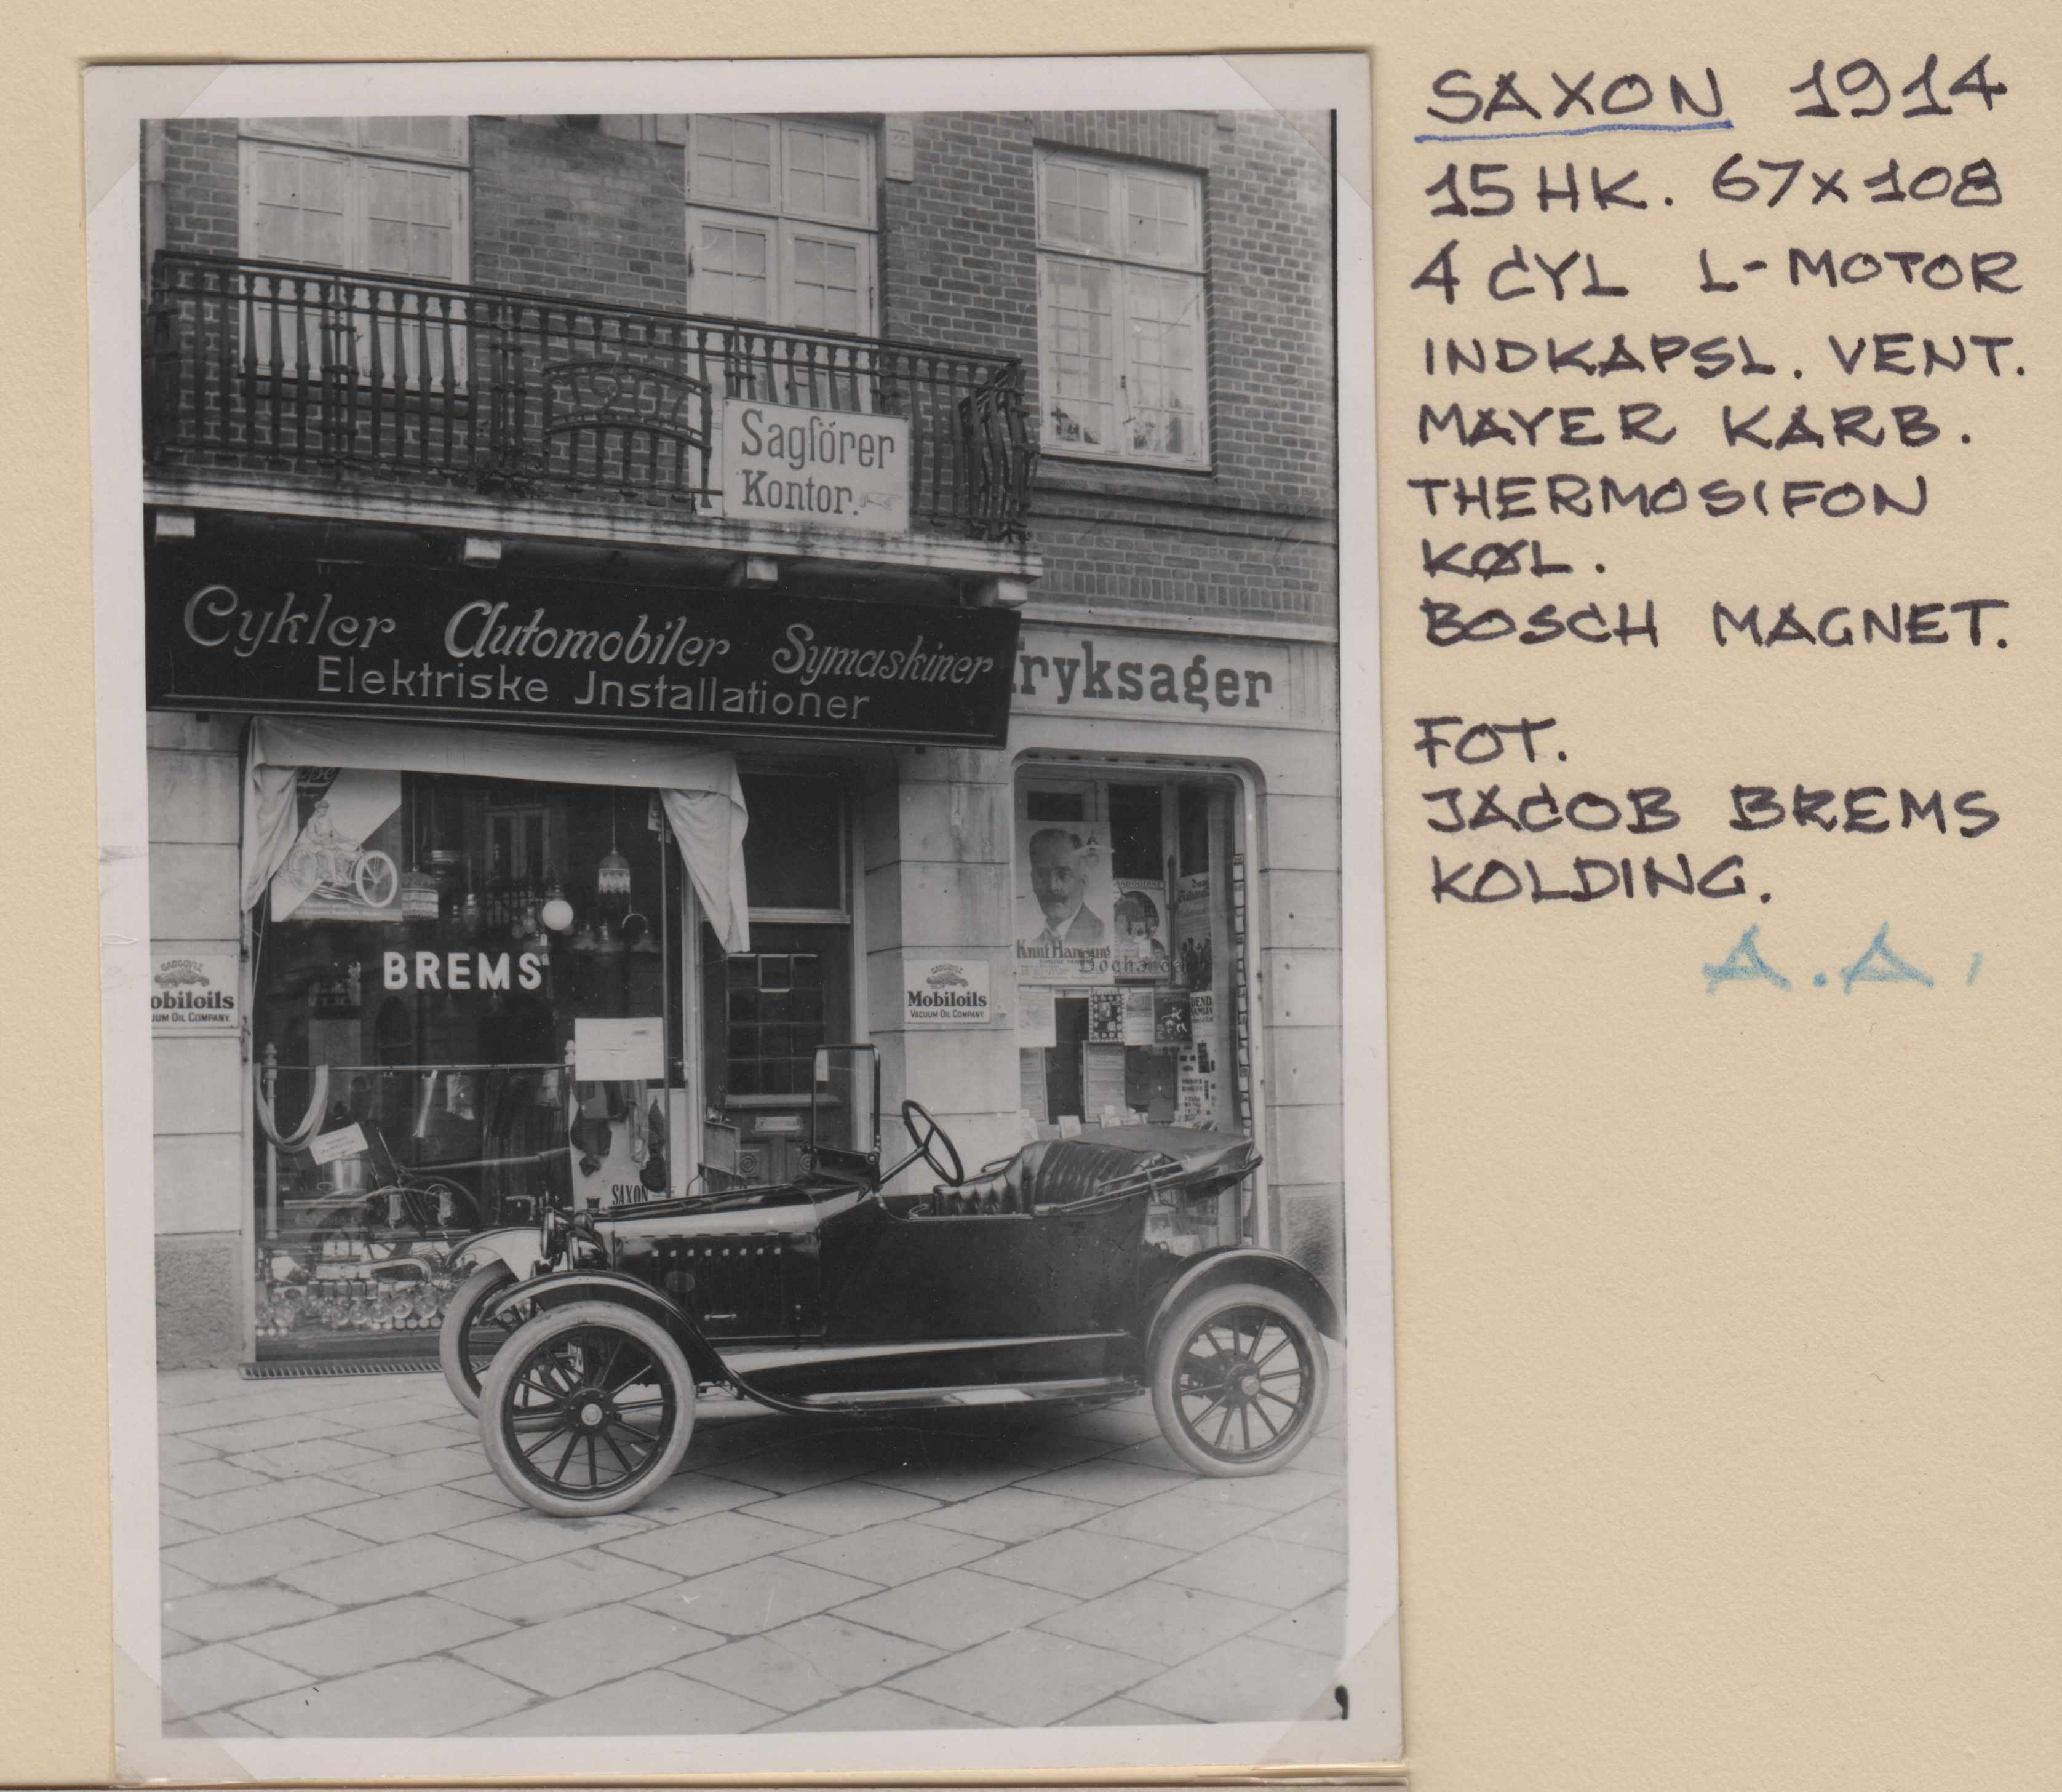 1911
Sagförer
Kontor.
Cykler Automobiler Symaskiner
Elektriske Jnstallationer
ryksager
BREMS
Knut Hamsuns
Boghandel
GARGOYLE
obiloils
UUM OIL COMPANY.
GARGOYLE
Mobiloils
VACUUM OIL COMPANY
SAXON
SAXON 1914
15 HK. 67x108
4 CYL L-MOTOR
INDKAPSL. VENT.
MAYER KARB.
THERMOSIFON
KØL.
BOSCH MAGNET.
FOT.
JACOB BREMS
KOLDING.
A.A.